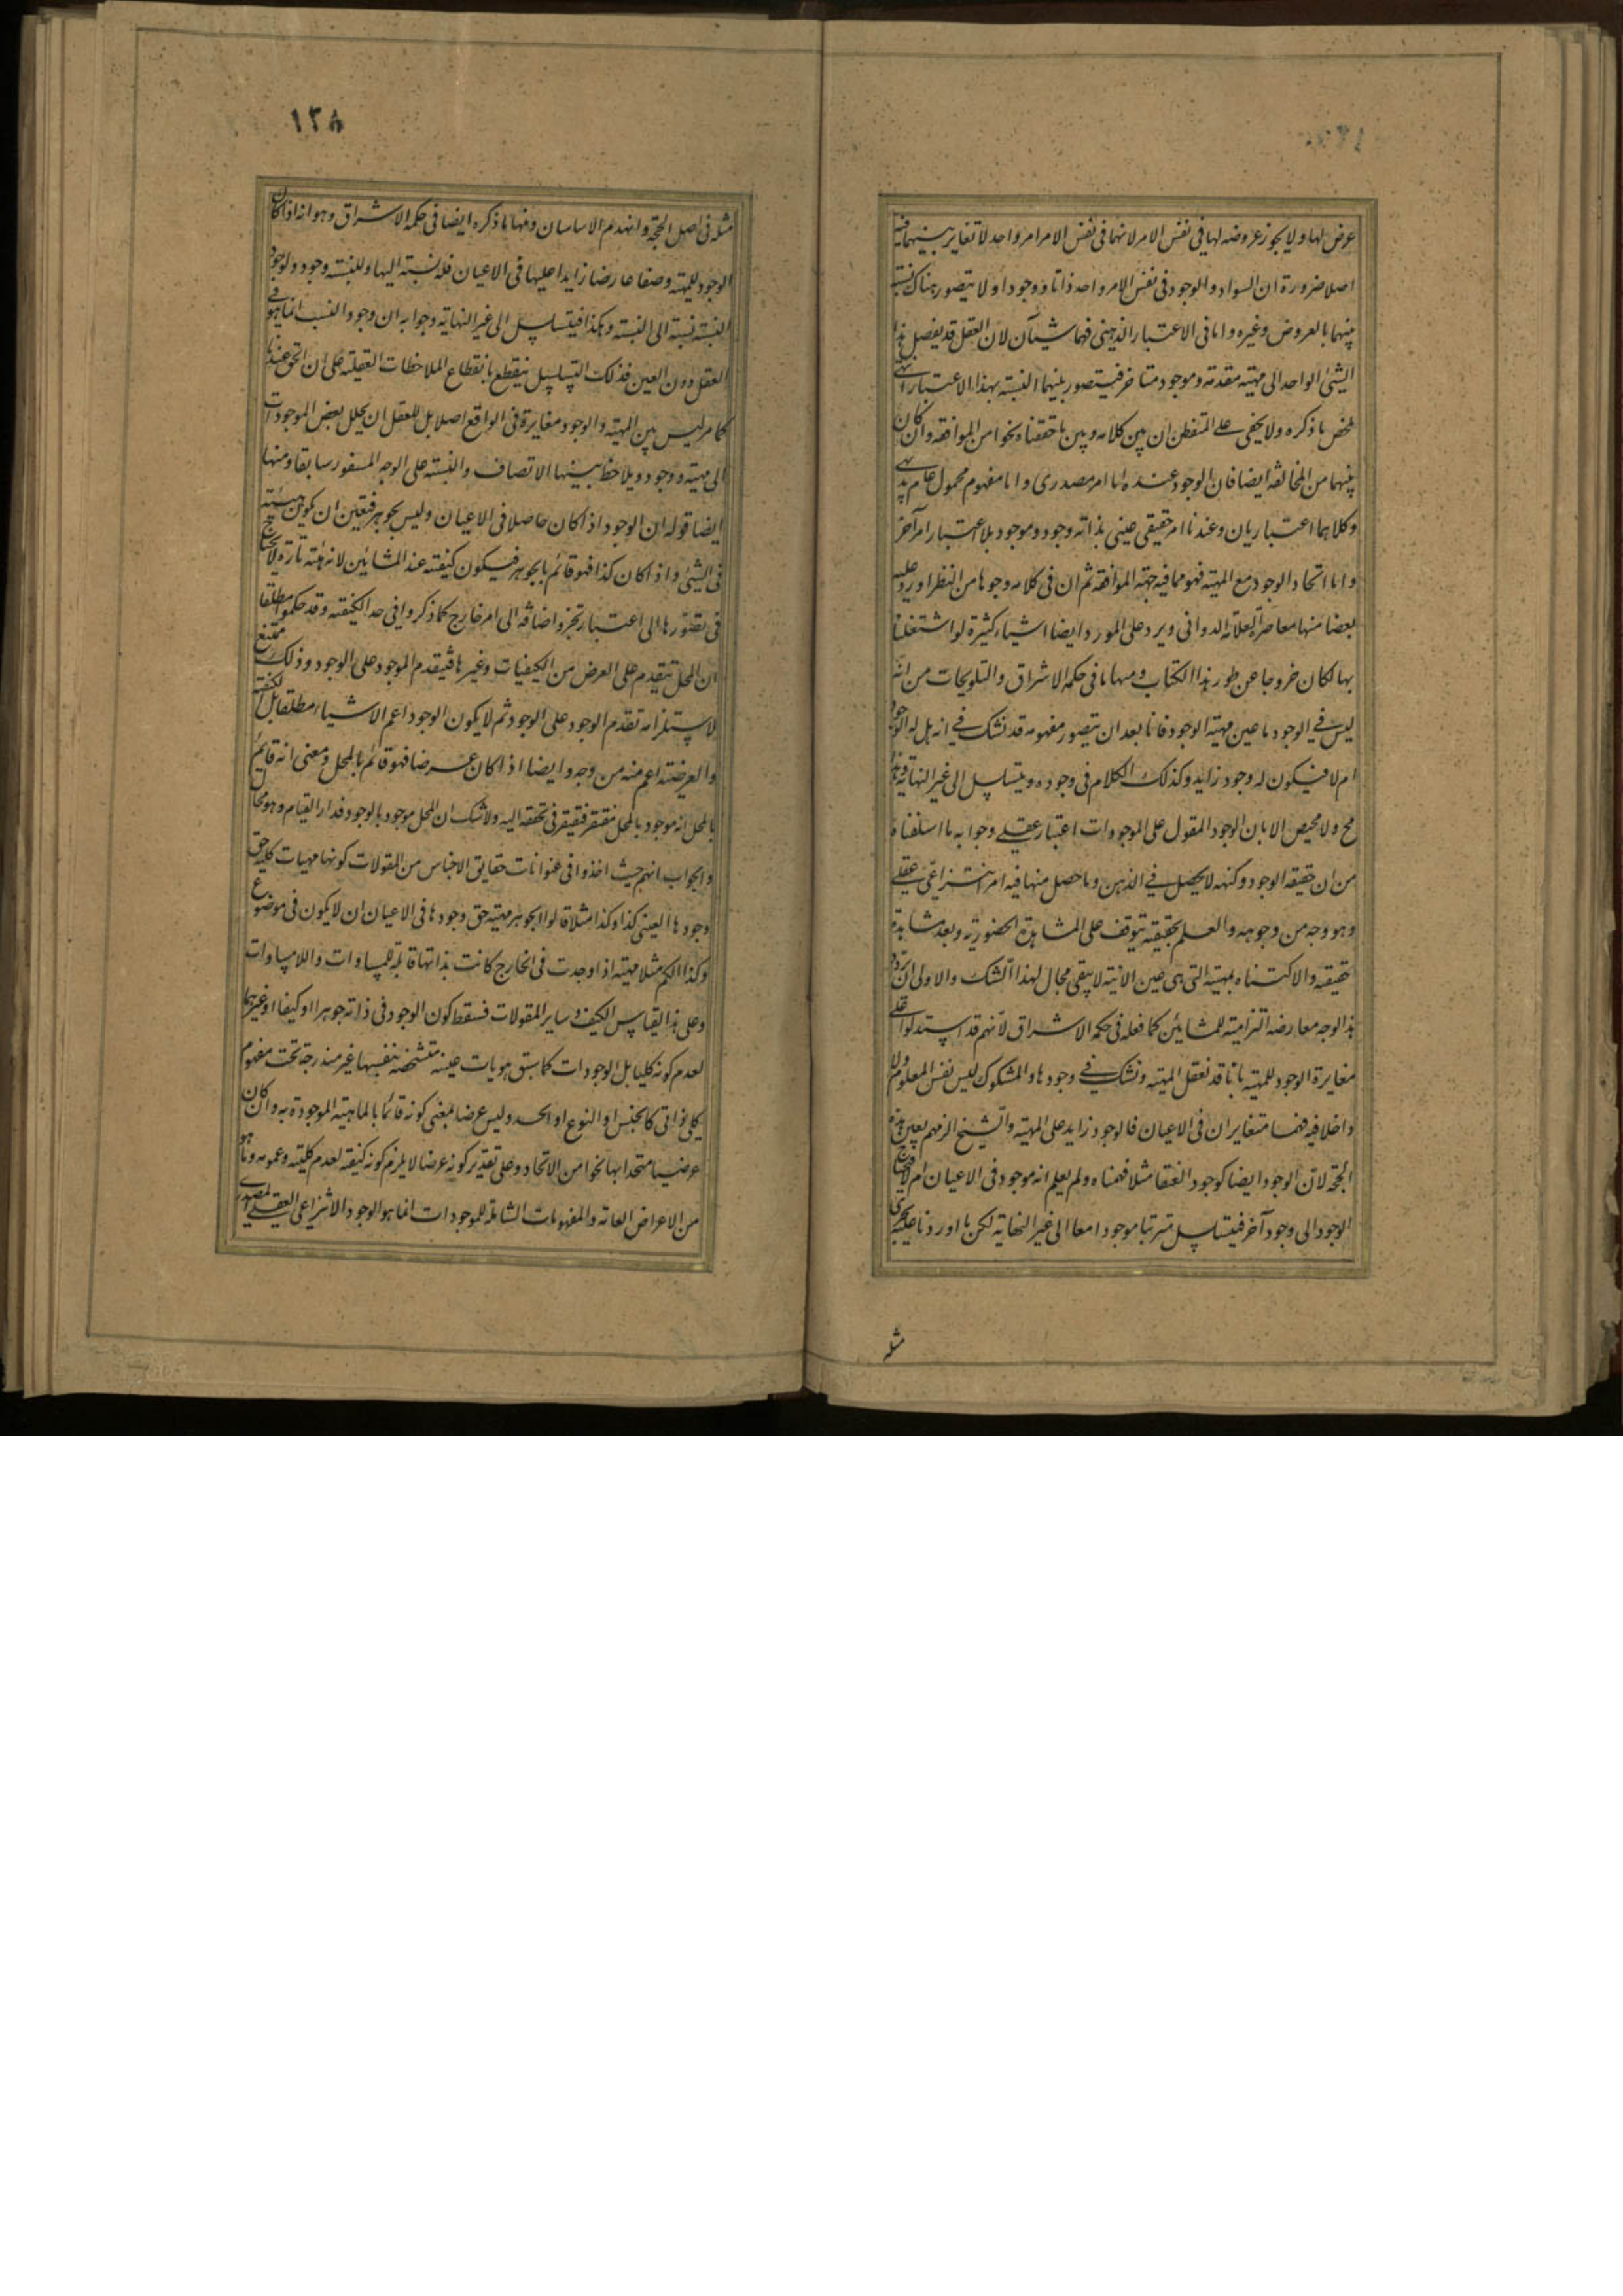 عرض لها ولا يجوز عروضه لها فى نفس الامر لانهما فى نفس الامر امر واحد لا تغاير بينهما فيه
اصلا ضرورة ان السواد والوجود فى نفس الامر واحد ذاتا ووجودا ولا يتصور هناك نسبة
بينهما بالعروض وغيره واما فى الاعتبار الذهنى فهما شيئان لان العقل قد يفصل هذا
الشئ الواحد الى مهية متقدمة ووجود متاخر فيتصور بينهما النسبة بهذا الاعتبار انتهى
ملخص ما ذكره ولا يخفى على المتفطن ان بين كلامه وبين ما حققنا نحوا من الموافقة وان كان
بينهما من المخالفة ايضا فان الوجود عنده اما امر مصدرى واما مفهوم محمول عام بديهى
وكلاهما اعتباريان وعندنا امر حقيقى عينى بذاته وجود وموجود بلا اعتبار امر آخر
واما اتحاد الوجود مع المهية فهو مما فيه جهة الموافقة ثم ان فى كلامه وجوها من النظر اورد عليه
بعضا منها معاصره العلامة الدوانى ويرد على المورد ايضا اشياء كثيرة لو اشتغلنا
بها لكان خروجا عن طور هذا الكتاب ومنها ما فى حكمة الاشراق والتلويحات من انه
ليس فى الوجود ما عين مهية الوجود فانا بعد ان يتصور مفهومه قد نشك فى انه هل له الوجود
ام لا فيكون له وجود زايد وكذلك الكلام فى وجوده ويتسلسل الى غير النهاية وهذا
مح ولا محيص الا بان الوجود المقول على الموجودات اعتبار عقلى وجوابه ما اسلفناه
من ان حقيقة الوجود وكنهه لا يحصل فى الذهن وما حصل منها فيه امر انتزاعى عقلى
وهو وجه من وجوهه والعلم بحقيقته يتوقف على المشاهدة الحضورية وبعد مشاهدة
حقيقته والاكتناه بمهيته التى هى عين الانية لا يبقى مجال لهذا الشك والاولى ان يرد
هذا الوجه معارضة الزامية للمشايين كما فعله فى حكمة الاشراق لانهم قد استدلوا على
مغايرة الوجود للمهية بانا قد نعقل المهية ونشك فى وجودها والمشكوك ليس نفس المعلوم ولا
داخلا فيه فهما متغايران فى الاعيان فالوجود زايد على المهية والشيخ الزمهم بعين هذه
الحجة لان الوجود ايضا كوجود العنقا مثلا فهمناه ولم يعلم انه موجود فى الاعيان ام لا فيحتاج
الوجود الى وجود آخر فيتسلسل مترتبا موجودا معا الى غير النهاية لكن ما اوردنا عليه يجرى
مثله
١٣٨
مثله فى اصل الحجة وانهدم الاساسان ومنها ما ذكره ايضا فى حكمة الاشراق وهو انه اذا كان
الوجود للمهية وصفا عارضا زايدا عليها فى الاعيان فله نسبة اليها وللنسبة وجود ولوجود
النسبة نسبة الى النسبة وهكذا فيتسلسل الى غير النهاية وجوابه ان وجود النسب انما هو فى
العقل دون العين فذلك التسلسل ينقطع بانقطاع الملاحظات العقلية على ان الحق عندنا
كما مر ليس بين المهية والوجود مغايرة فى الواقع اصلا بل للعقل ان يحلل بعض الموجودات
الى مهية ووجود ويلاحظ بينهما الاتصاف والنسبة على الوجه المسفور سابقا ومنها
ايضا قوله ان الوجود اذا كان حاصلا فى الاعيان وليس بجوهر فتعين ان يكون هيئة
فى الشئ واذا كان كذا فهو قائم بالجوهر فيكون كيفية عند المشائين لانه هيئة قارة لا يحتاج
فى تصورها الى اعتبار تجز واضافة الى امر خارج كما ذكروا فى حد الكيفية وقد حكموا مطلقا
ان المحل يتقدم على العرض من الكيفيات وغيرها فيتقدم الموجود على الوجود وذلك ممتنع
لاستلزامه تقدم الوجود على الوجود ثم لا يكون الوجود اعم الاشياء مطلقا بل الكيفية
والعرضية اعم منه من وجه وايضا اذا كان عرضا فهو قائم بالمحل ومعنى انه قايم
بالمحل انه موجود بالمحل مفتقر فى تحققه اليه ولا شك ان المحل موجود بالوجود فدار القيام وهو محال
والجواب انهم حيث اخذوا فى عنوانات حقايق الاجناس من المقولات كونها مهيات كلية حق
وجودها العينى كذا وكذا مثلا قالوا الجوهر مهية حق وجودها فى الاعيان ان لا يكون فى موضوع
وكذا الكم مثلا مهية اذا وجدت فى الخارج كانت بذاتها قابلة للمساوات واللامساوات
وعلى هذا القياس الكيف وساير المقولات فسقط كون الوجود فى ذاته جوهرا او كيفا او غيرهما
لعدم كونه كليا بل الوجودات كما سبق هويات عينية متشخصة بنفسها غير مندرجة تحت مفهوم
كلى ذاتى كالجنس او النوع او الحد وليس عرضا بمعنى كونه قائما بالماهية الموجودة به وان كان
عرضيا متحدا بها نحوا من الاتحاد وعلى تقدير كونه عرضا لا يلزم كونه كيفية لعدم كليته وعمومه وما هو
من الاعراض العامة والمفهومات الشاملة للموجودات انما هو الوجود الانتزاعى العقلى المصدرى